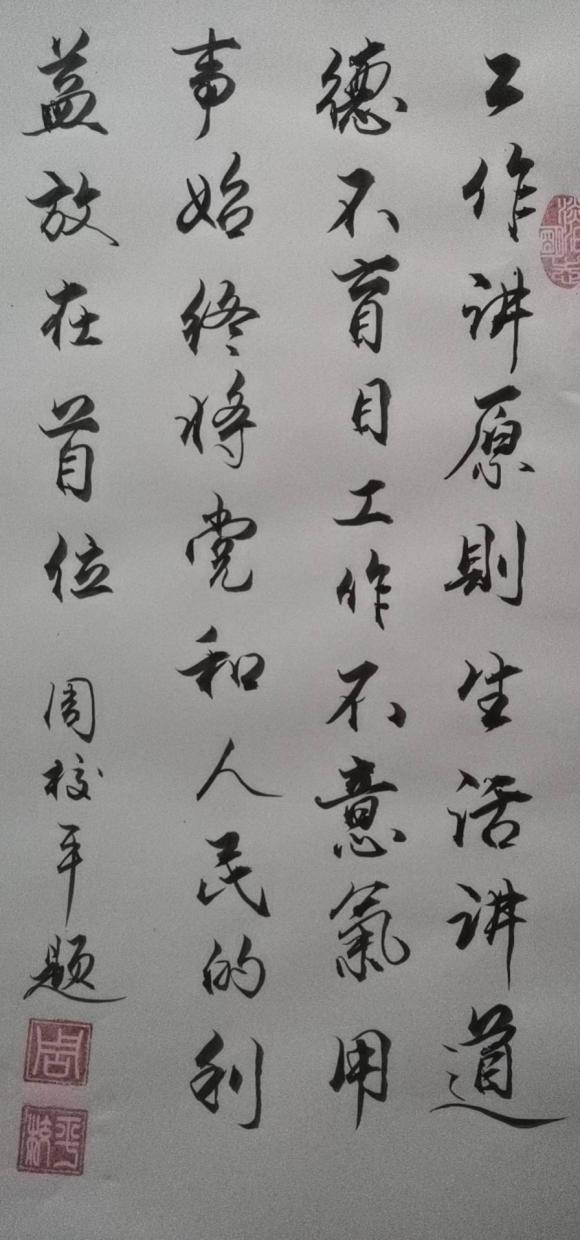 工作讲原则生活讲道
德不盲目工作不意氣用
事始终将党和人民的利
益放在首位
周校平题